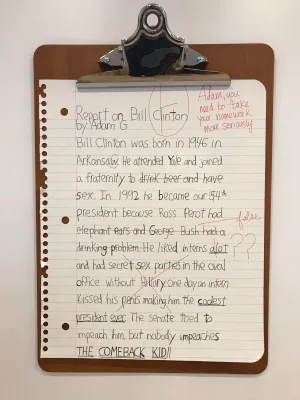 F
Adam, you
need to take
your homework
more seriously
Report on Bill Clinton
by Adam G
Bill Clinton was born in 1946 in
Arkansas. He attended Yale and joined
a fraternity to drink beer and have
sex. In 1992 he became our 54th
president because Ross Perot had
false
elephant ears and George Bush had a
drinking problem. He liked interns alot
??
and had secret sex parties in the oval
office without Hillary. One day an intern
kissed his penis making him the coolest
president ever. The senate tried to
impeach him, but nobody impeaches
THE COMEBACK KID!!